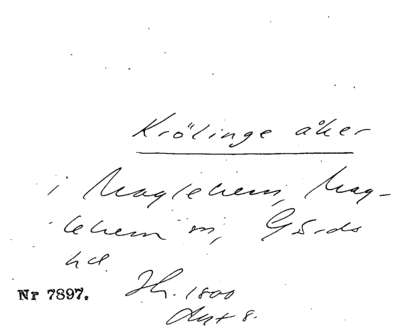 Krölinge åker
i Maglehem, Mag-
lehem sn, Gärds
hd.
Nr 7897. Sk. 1800
Akt 8.